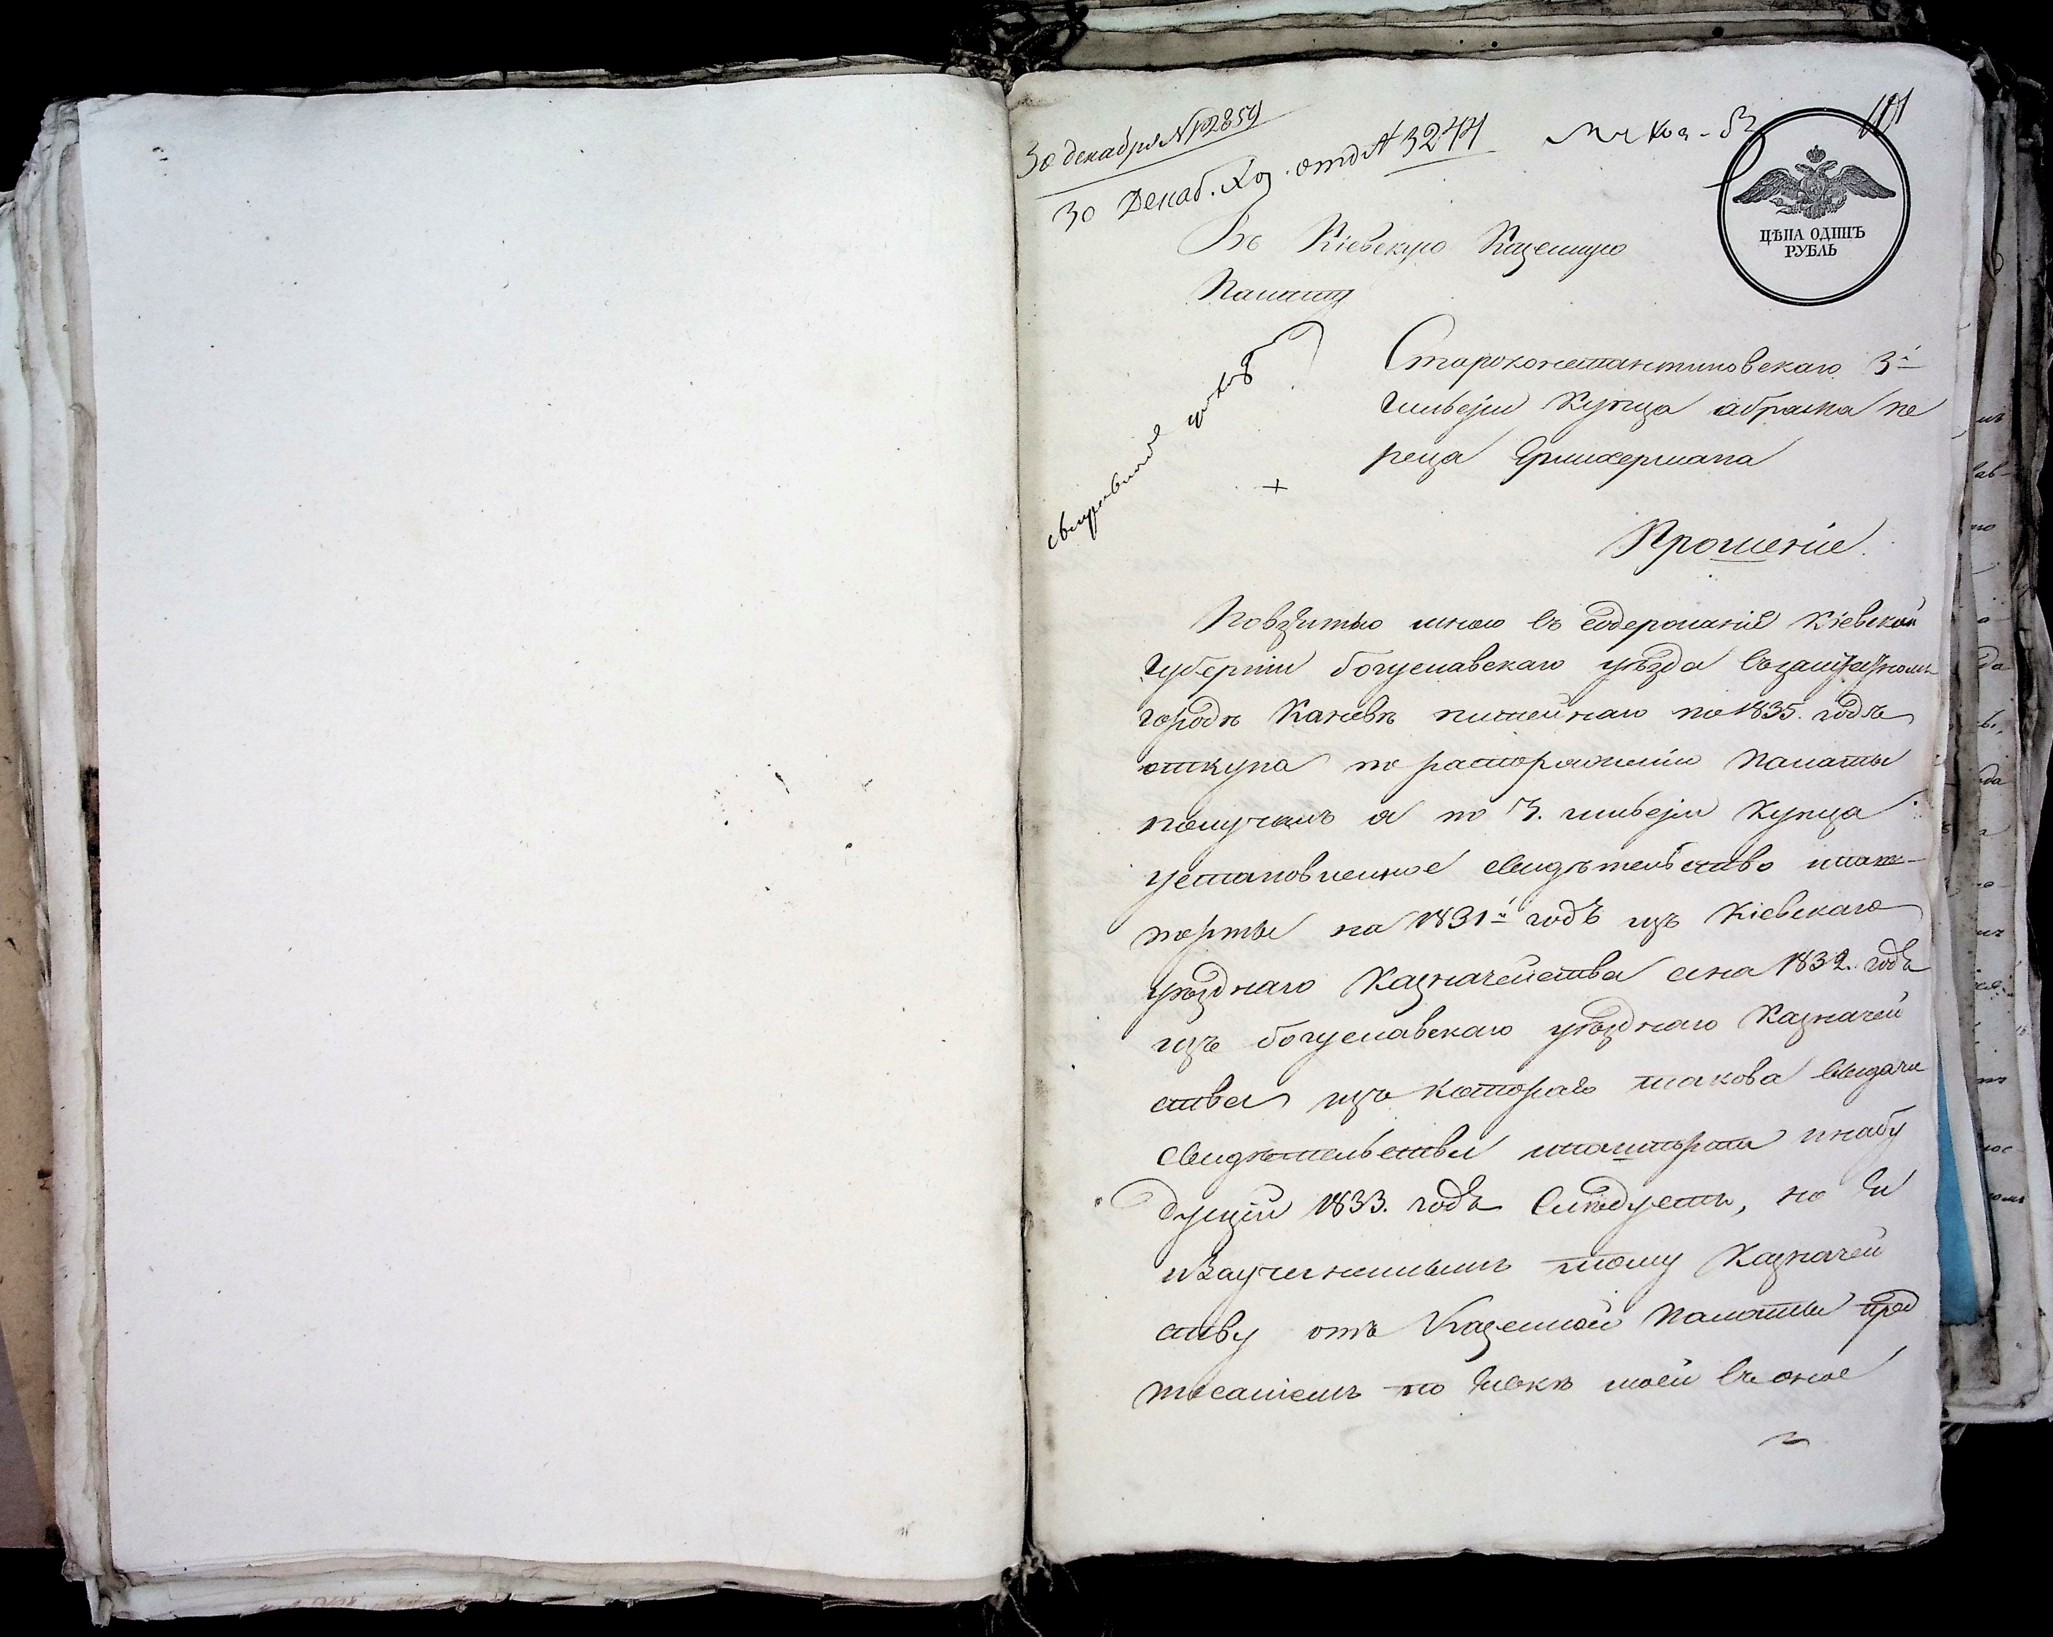 30 декабря № 12859
30 Декаб. Хоз. отд № 3244
101
ЦѢНА ОДИНЪ
РУБЛЬ
Въ Кіевскую Казенную
Палату
Староконстантиновскаго 3й
Гильдіи Купца абрама пе
реца
Прошеніе.
Повзятью мною въ содержаніе Кіевской
Губерніи богуславскаго уѣзда въ заштатномъ
городѣ Каневѣ питейнаго по 1835. годъ
откупа по распоряженію Палаты
получалъ я по 3. гильдіи Купца
установленное свидѣтельство
на 1831й годъ изъ Кіевскаго
уѣзднаго Казначейства ана 1832. годъ
изъ богуславскаго уѣзднаго Казначей
ства изъ котораго такова выдача
свидѣтельства инабу
дущій 1833. годъ слѣдуетъ, но
тому Казначей
ству отъ Казенной Палаты пред
писаніемъ по моей въ оное